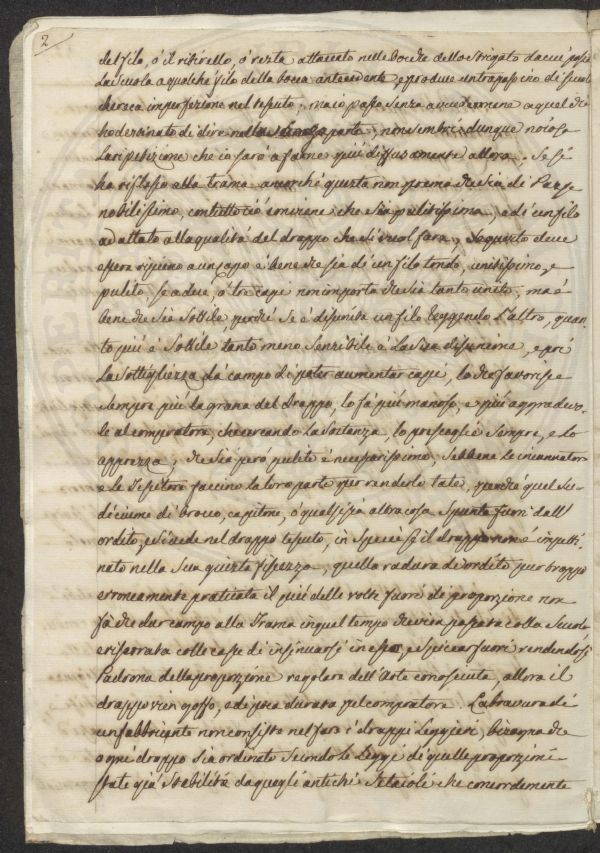 2
del filo, ó il ritirello, ó resta attaccato nelle bocche dello strigato da cui passa
La scuola a qualche filo della bocca antecedente e produce un trapassino di
che reca imperfezione nel tessuto; ma io passo senza accudermene a quel che
ho destinato di dire nella seconda parte; non sembri dunque noiosa
La ripetizione che io farò a farne più diffusamente allora. Se si
ha riflesso alla trama ancorché questa non prema che sia di Paese
nobilissimo, contuttociò conviene che sia pulitissima, e di un filo
adattato alla qualitá del drappo che si vuol fare, se questo deve
essere ripieno a un capo é bene che sia di un filo tondo, unitissimo, e
pulito se a due, ó tre capi non importa che sia tanto unito, ma é
bene che sia sottile perché se é disunito un filo reggendo L'altro, quan-
to piú é sottile tanto meno sensibile é La sua disunione, e poi
La sottigliezza dá campo di poter aumentar capi, lo che favorisce
sempre piú la grana del drappo, lo fá piú manoso, e piú aggradevo-
le al compratore, che cercando La sostanza, lo presceglie sempre, e lo
apprezza; che sia peró pulito é necessarissimo, sebbene le incannatore
e le Tessitore faccino la loro parte per renderlo tale, perché quel su-
diciume di brocco, capitone, ó qualsisia altra cosa spunta fuori dall'
ordito, e si vede nel drappo tessuto, in specie se il drappo non é impetti-
nato nella sua giusta fissezza, quella radura di ordito pur troppo
erroneamente praticata il piú delle volte fuori di proporzione non
fá che dar campo alla Trama in quel tempo che vien passata colla Scuola
e riserrata colle casse di insinuarsi in essa, e spiccar fuori rendendosi
Padrona della proporzione regolare dell'Arte conosciuta, allora il
drappo vien goffo, e di poca durata pel compratore. La bravura di
un fabbricante non consiste nel fare i drappi Leggieri, bisogna che
ogni drappo sia ordinato secondo le Leggi di quelle proporzioni
state già stabilite da quegli antichi Setaioli che concordemente